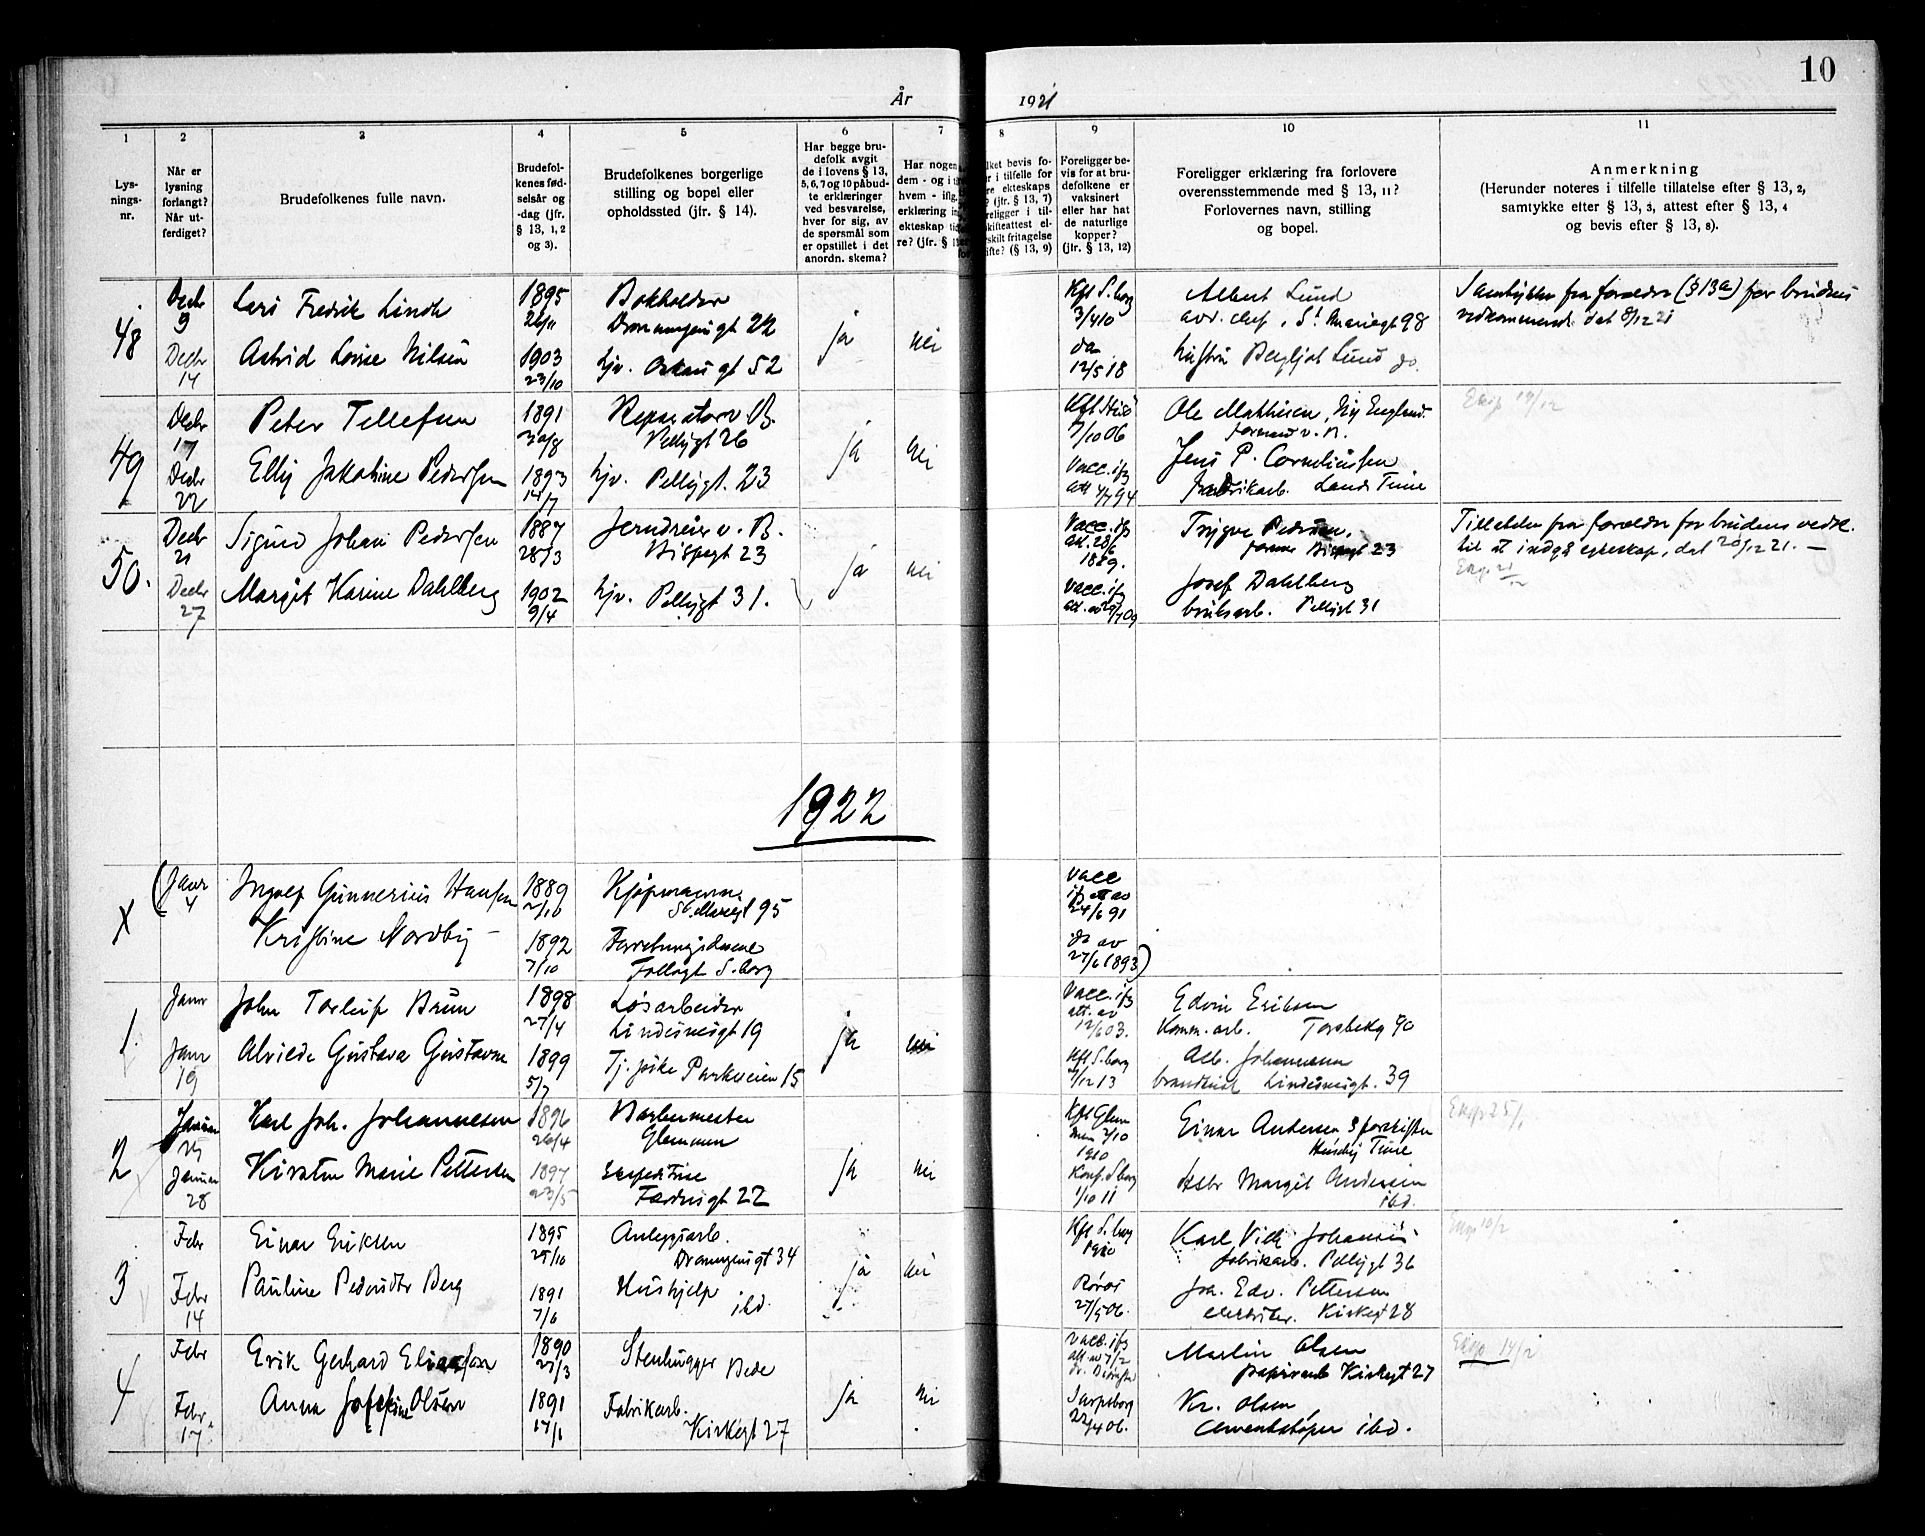 10
År
1921
1
2
3
4
5
6
7
8
9
10
11
Lys-
nings-
nr.
Når er
lysning
forlangt?
Når ut-
ferdiget?
Brudefolkenes fulle navn.
Brudefol-
kenes fød-
selsår og
-dag (jfr.
§ 13, 1, 2
og 3).
Brudefolkenes borgerlige
stilling og bopel eller
opholdssted (jfr. § 14).
Har begge bru-
defolk avgit
de i lovens § 13,
5, 6, 7 og 10 påbud-
te erklæringer
ved besvarelse,
hver for sig, av
de spørsmål som
er opstillet i det
anordn. skema?
Har nogen
dem - og i
hvem - ifig.
erklæring
ekteskap
re? (jfr. §
bevis fo-
i tilfelle for
ekteskaps
? (jfr. § 13, 7)
i til-
skifteattest el-
fritagelse
? (§ 13, 9)
Foreligger be-
vis for at bru-
defolkene er
vaksinert
eller har hat
de naturlige
kopper?
(jfr. § 13, 12)
Foreligger erklæring fra forlovere
overensstemmende med § 13, 11?
Forlovernes navn, stilling
og bopel.
Anmerkning
(Herunder noteres i tilfelle tillatelse efter § 13, 2,
samtykke efter § 13, 3, attest efter § 13, 4
og bevis efter § 13, 8).
48
Decbr
9
Decbr
14
Lars Fredrik Lindh
Astrid Lovise Nilsen
1895
26/11
1903
23/10
Bokholder
Dronningensgt 22
hjv. Oskarsgt 52
ja
nei
Kft S.borg
3/4 10
do
12/5 18
Albert Lund
avd. chef, St. Mariegt 98
Bergljot Lund do.
Samtykke fra forældre (§ 13 a) for brudens
vedkommende dat 8/12 21
49
Decbr
17
Decbr
22
Peter Tellefsen
Elly Jakobine Pedersen
1891
30/8
1893
14/7
Reparatør v. B.
Pellygt 26
hjv. Pellygt. 23
ja
nei
1/10 06
Vacc. ifg
att 4/7 94
Ole Mathisen, Ny England
formand v. B.
Jens P. Corneliussen
fabrikarb. Lande Tune
Eksp 19/12
50.
Decbr
21
Decbr
27
Sigurd Johan Pedersen
Margit Karine Dahlberg
1887
28/3
1902
9/4
Jerndreier v. B.
Bispegt 23
hjv. Pellygt 31.
ja
nei
Vacc. ifg
att. 28/6
1889.
Vacc. ifg
Trygve Pedersen,
former Bispegt 23
Josef Dahlberg
bruksarb. Pellygt 31
Tillatelse fra forældre for brudens vedk.
til at indgå egteskap, dat 20/12 21. —
1922
X
(Janr
4
Ingolf Gunnerius Hansen
Kristine Nordby —
1889
2/10
1892
7/10
Kjøpmann
St. Mariegt 95
Forretningsdame
Follogt S.borg
Vacc
ifg att av
24/6 91
do av
27/6 1893)
1.
Janr
Janr
19
John Torleif Brun
Alvilde Gustava Gustavsen
1898
27/4
1899
5/7
Løsarbeider
Lindemsgt 19
Tj. pike Parkveien 15
ja
nei
Vacc. ifg
att. av
12/6 03.
Kft S.borg
7/12 13
Edvin Eriksen
Komm. arb. Torsbekg 90
Alb. Johannessen
Lindemsgt. 39
2
Januar
25
Januar
28
Karl Joh. Johannessen
Kirsten Marie Pettersen
1896
26/4
1897
23/5
Barbermester
Glemmen
Ekspeditrise
22
ja
nei
Kft Glem
men 2/10
1910
Konf. S.borg
1/10 11
Einar Andersen Sporskifter
Tune
Margit Andersen
ibd.
Eksp 25/1
3
Febr
Febr
14
Einar Eriksen
Pauline Pedersdtr Berg
1895
25/10
1891
7/6
Anleggsarb.
Dronningensgt 34
Hushjelp
ibd.
ja
nei
Kft S.borg
1910
Røros
27/5 06.
Karl Vilh Johansen
fabrikarb. Pellygt 36
Joh. Edv. Pettersen
elektriker. Kirkegt 28
Eksp 10/2
4
Febr
Febr.
17
Erik Gerhard Eliassen
Anna Josefine Olsen
1890
21/3
1891
17/1
Stenhugger
Fabrikarb.
Kirkegt 27
ja
nei
Vacc. ifg
att. av 7/2
Sarpsborg
22/4 06.
Martin Olsen
papirarb Kirkegt 27
Kr. Olsen
cementstøper ibd.
Eksp 14/2